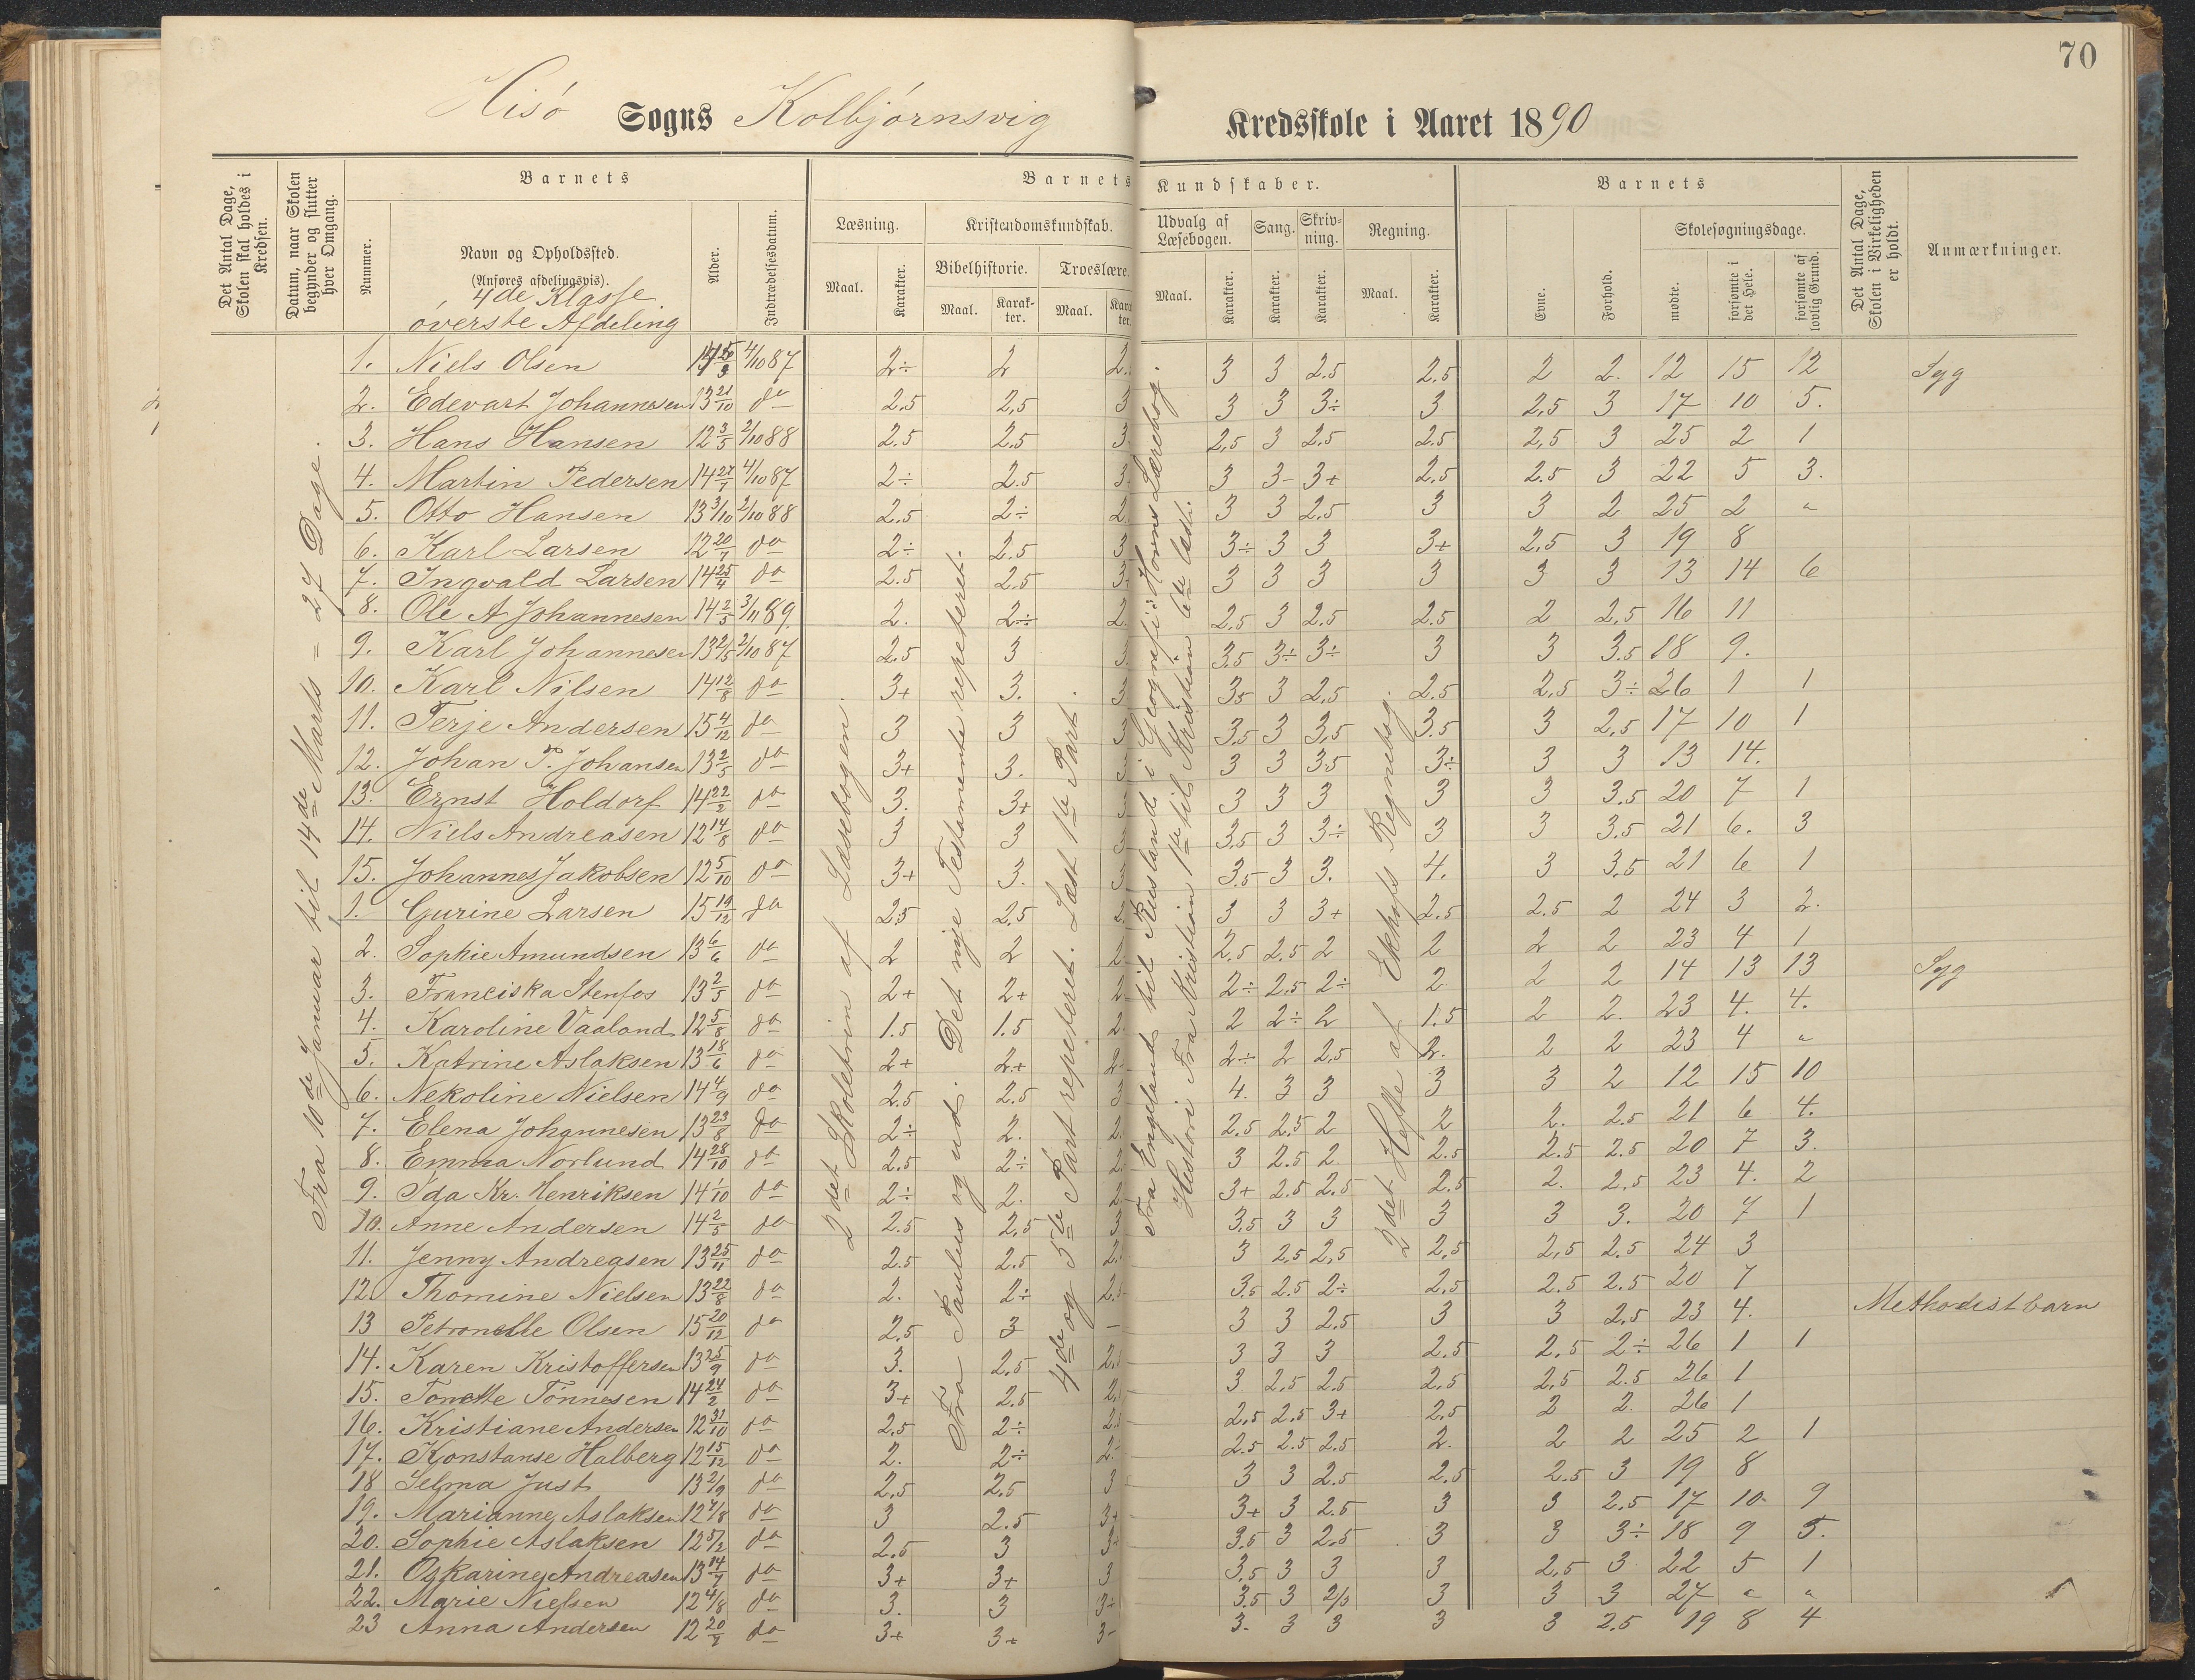 70
Hisø Sogns Kolbjørnsvig Kredsskole i Aaret 1890
Det Antal Dage, Skolen skal holdes i Kredsen.
Datum, naar Skolen begynder og slutter hver Omgang.
Barnets
Nummer.
Navn og Opholdssted.
(Anføres afdelingsvis).
4de Klasse
øverste Afdeling
Alder.
Indtrædelsesdatum.
Barnets Kundskaber.
Læsning. Kristendomskundskab. Udvalg af Læsebogen. Sang. Skrivning. Regning.
Maal. Karakter. Bibelhistorie. Troeslære.
Maal. Karakter. Maal. Karakter.
Maal. Karakter. Karakter. Karakter. Maal. Karakter.
Barnets
Evne. Forhold. Skolesøgningsdage.
mødte. forsømte i det Hele. forsømte af lovlig Grund.
Det Antal Dage, Skolen i Virkeligheden er holdt.
Anmærkninger.
Fra 10de Januar til 14de Marts = 27 Dage.
2det Skoletrin af Læsebogen.
Fra Paulus og ud. Det nye Testamente repeteret.
4de og 5te Part repeteret. Læst 1te Part.
Fra England til Rusland i Geografi: Horns Lærebog.
Historie Fra Kristian 1ste til Kristian 6te læst.
2det Hefte af Ekhofs Regnebog.
1. Niels Olsen 4/10 87 2÷ 2 2. 3 3 2.5 2.5 2 2. 12 15 12 Syg
2. Edevart Johannesen 13 21/10 do 2.5 2,5 3 3 3 3÷ 3 2,5 3 17 10 5.
3. Hans Hansen 12 3/5 2/10 88 2.5 2.5 3. 2,5 3 2,5 2.5 2,5 3 25 2 1
4. Martin Pedersen 14 27/7 4/10 87 2÷ 2.5 3. 3 3- 3+ 2,5 2.5 3 22 5 3.
5. Otto Hansen 13 3/10 2/10 88 2.5 2÷ 2. 3 3 2.5 3 3 2 25 2 "
6. Karl Larsen 12 20/7 do 2÷ 2.5 3 3÷ 3 3 3+ 2,5 3 19 8
7. Ingvald Larsen 14 25/4 do 2.5 2.5 3. 3 3 3 3 3 3 13 14 6
8. Ole A Johannesen 14 2/5 3/11 89. 2. 2÷ 2. 2.5 3 2.5 2.5 2 2,5 16 11
9. Karl Johannesen 13 2/5 2/10 87 2.5 3 3. 3.5 3÷ 3÷ 3 3 3.5 18 9.
10. Karl Nilsen 14 12/8 do 3+ 3. 3 3.5 3 2,5 2.5 2,5 3÷ 26 1 1
11. Terje Andersen 15 4/12 do 3 3 3 3,5 3 3,5 3.5 3 2,5 17 10 1
12. Johan P. Johansen 13 2/5 do 3+ 3. 3 3 3 3.5 3÷ 3 3 13 14.
13. Ernst Holdorf 14 22/2 do 3. 3+ 3 3 3 3 3 3 3.5 20 7 1
14. Niels Andreasen 12 14/8 do 3 3 3 3,5 3 3÷ 3 3 3.5 21 6. 3
15. Johannes Jakobsen 12 5/10 do 3+ 3. 3 3.5 3 3. 4. 3 3.5 21 6 1
1. Gurine Larsen 15 19/12 do 2.5 2,5 2. 3 3 3+ 2.5 2.5 2 24 3 2.
2. Sophie Amundsen 13 6/6 do 2 2 2. 2,5 2,5 2 2 2 2 23 4 1
3. Franciska Stenfos 13 2/5 do 2+ 2+ 2 2÷ 2.5 2÷ 2. 2 2 14 13 13 Syg
4. Karoline Vaaland 12 5/8 do 1.5 1.5 2. 2 2÷ 2 1.5 2 2. 23 4. 4.
5. Katrine Aslaksen 13 18/6 do 2+ 2+ 2. 2÷ 2 2,5 2. 2 2 23 4 "
6. Nekoline Nielsen 14 4/9 do 2.5 2.5 3 4. 3 3 3 3 2 12 15 10
7. Elena Johannesen 13 23/8 do 2÷ 2. 2. 2.5 2.5 2 2 2. 2.5 21 6 4.
8. Emma Norlund 14 28/10 do 2.5 2÷ 2. 3 2.5 2. 2.5 2.5 2.5 20 7 3.
9. Ida Kr. Henriksen 14 1/10 do 2÷ 2. 2. 3+ 2.5 2.5 2.5 2. 2,5 23 4. 2
10. Anne Andersen 14 2/5 do 2.5 2,5 3 3.5 3 3 3 3 3. 20 7 1
11. Jenny Andreasen 13 25/11 do 2.5 2.5 2. 3 2,5 2,5 2,5 2,5 2.5 24 3
12. Thomine Nielsen 13 22/8 do 2. 2÷ 2.5 3.5 2.5 2÷ 2,5 2.5 2.5 20 7
13 Petronelle Olsen 15 20/12 do 2,5 3 – 3 3 2.5 3 3 2,5 23 4. Methodistbarn
14. Karen Kristoffersen 13 25/9 do 3. 2,5 2.5 3 3 3 2.5 2,5 2÷ 26 1 1
15. Tonette Tønnesen 14 24/2 do 3+ 2.5 2.5 3 2,5 2.5 2,5 2,5 2.5 26 1
16. Kristiane Andersen 12 31/10 do 2,5 2÷ 2.5 2,5 2.5 3+ 2,5 2 2. 26 1
17. Konstanse Halberg 12 15/12 do 2. 2÷ 2÷ 2.5 2.5 2.5 2. 2 2 25 2 1
18 Selma Just 13 2/9 do 2,5 2,5 3 3 3 2.5 2.5 2.5 3 19 8
19. Marianne Aslaksen 12 7/8 do 3 2.5 3+ 3+ 3 2.5 3 3 2.5 17 10 9
20. Sophie Aslaksen 12 5/2 do 2.5 3 3+ 3.5 3 2.5 3 3 3÷ 18 9 5.
21. Oskarine Andreasen 13 14/7 do 3+ 3+ 3 3,5 3 3 3 2,5 3 22 5 1
22. Marie Nielsen 12 4/8 do 3. 3 3÷ 3.5 3 2/3 3 3 3 27 " "
23 Anna Andersen 12 20/8 do 3+ 3+ 3– 3. 3 3 3 3 2.5 19 8 4